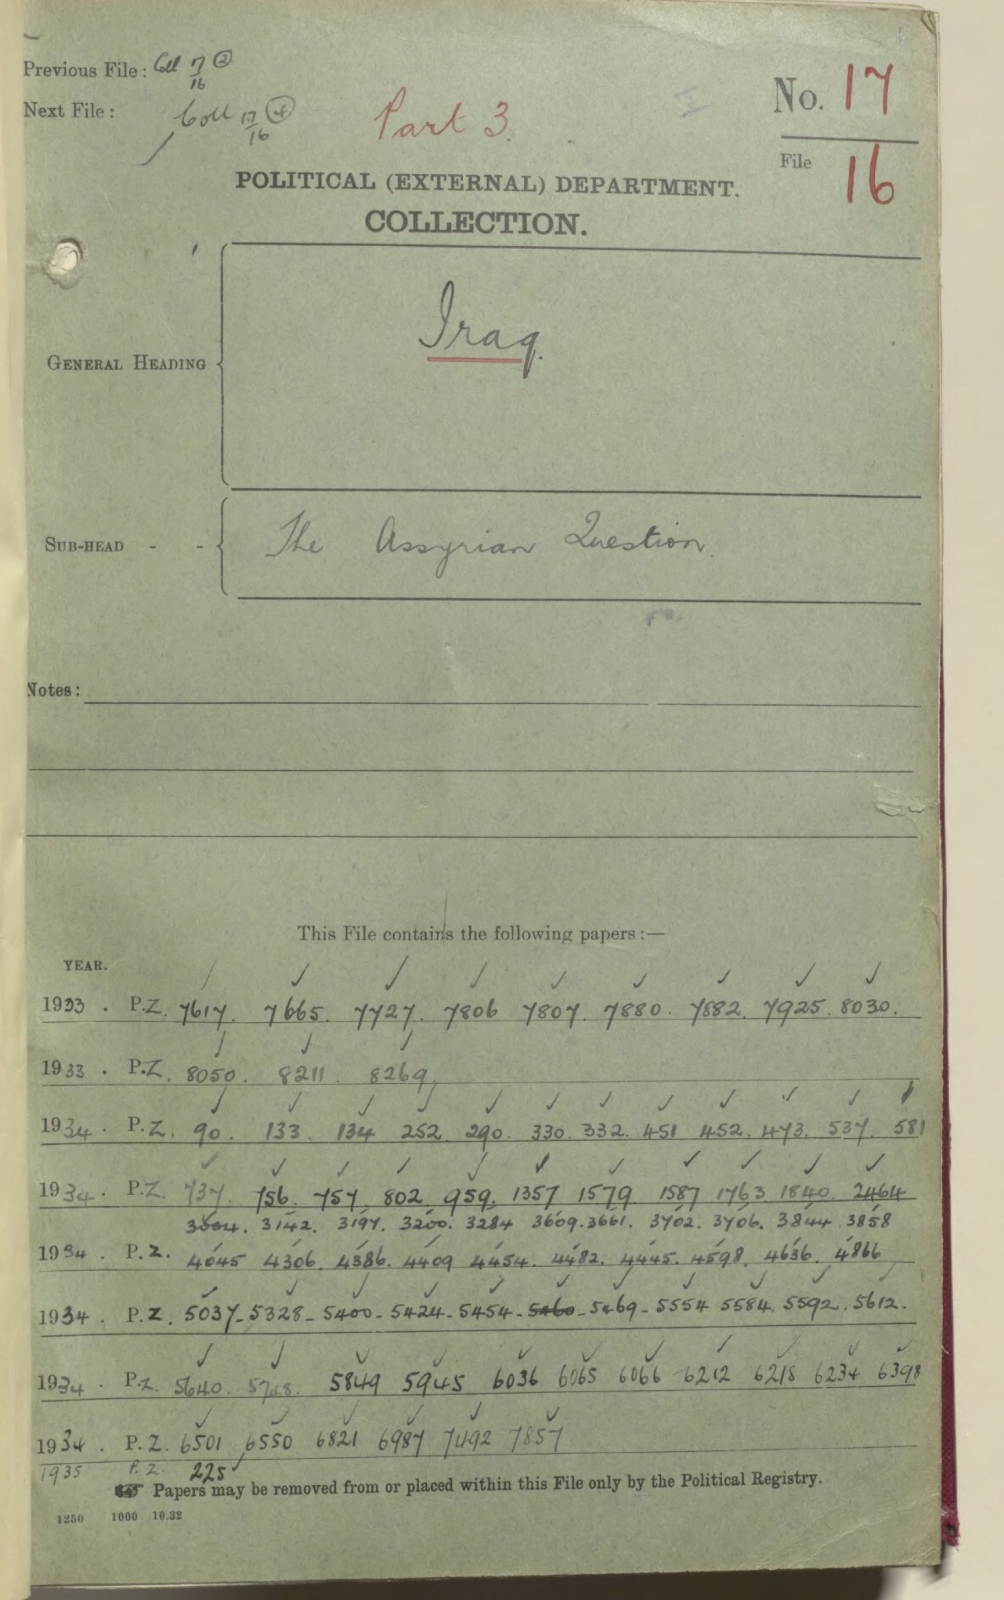 Previous File: Coll 17/16 (2)
Next File: Coll 17/16 (4)
Part 3.
No. 17
File 16
POLITICAL (EXTERNAL) DEPARTMENT.
COLLECTION.
GENERAL HEADING
Iraq.
SUB-HEAD - -
The Assyrian Question.
Notes:
This File contains the following papers:—
YEAR.
1933 . P.Z. 7617. 7665. 7727. 7806 7807. 7880. 7882. 7925. 8030.
1933 . P.Z. 8050. 8211. 8269,
1934 . P.Z. 90. 133. 134 252. 290. 330. 332. 451 452. 473. 537. 581
1934 . P.Z. 737. 756. 757. 802. 959. 1357 1579 1587 1763 1840. 2464
3142. 3197. 3200. 3284 3609. 3661. 3702. 3706. 3844 3858
1934 . P.Z. 4045 4306. 4386. 4409 4454. 4482. 4445. 4598. 4636. 4866
1934 . P.Z. 5037- 5328- 5400- 5424- 5454- 5460- 5469- 5554 5584. 5592. 5612.
1934 . P.Z. 5640. 5748. 5849 5945 6036 6065 6066 6212 6218 6234 6398
1934 . P.Z. 6501 6550 6821 6987 7492 7857
1935 P.Z. 225
Papers may be removed from or placed within this File only by the Political Registry.
1250 1000 10.32